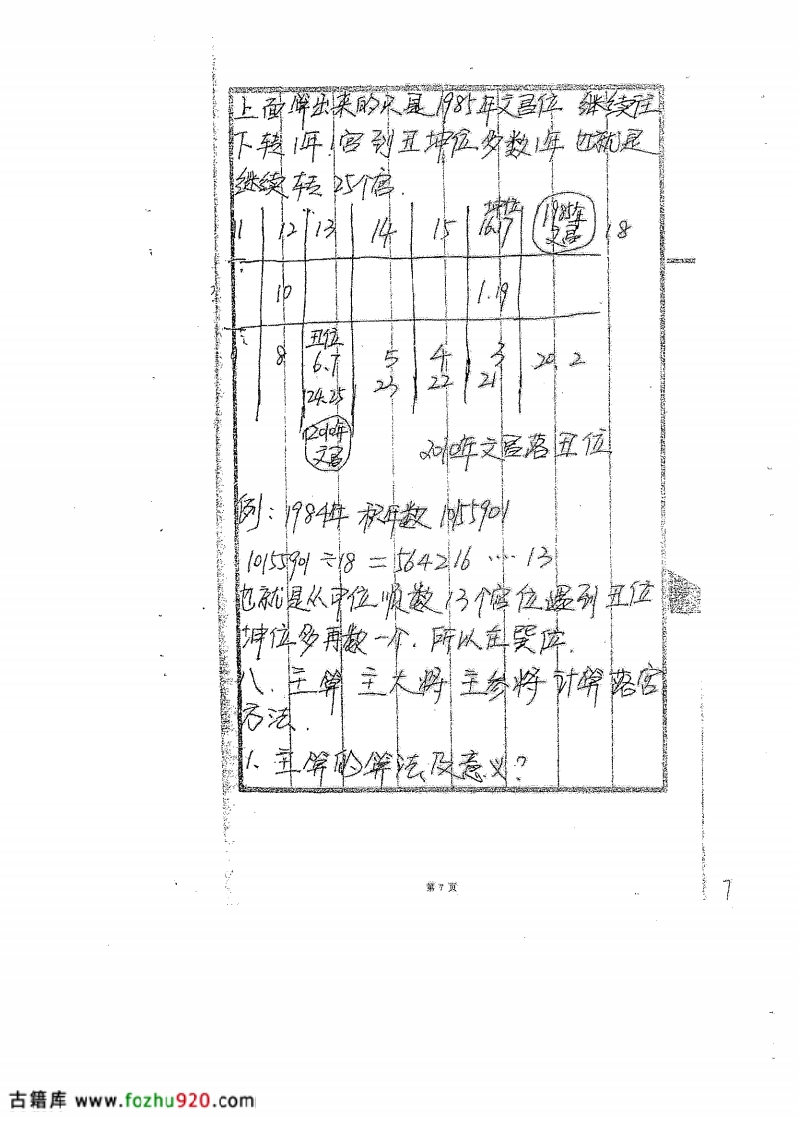 上面算出来的只是1985年文昌位 继续往
下转1年1宫到丑坤位多数1年也就是
继续转25个宫.
11 12 13 14 15 坤位 16.17 1985年文昌 18
10 1.19
8 丑位 6.7 5 4 3 20. 2
24.25 23 22 21
2010年文昌
2010年文昌落丑位
例：1984年 积年数 10155901
10155901÷18=564216 … 13
也就是从申位顺数13个宫位遇到丑位
坤位多再数一个. 所以在巽位.
八. 主算 主大将 主参将 计算落宫
方法.
1. 主算的算法及意义？
第 7 页
7
古籍库 www.fozhu920.com